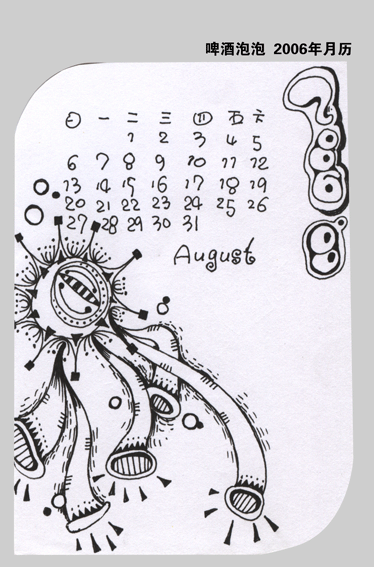 啤酒泡泡 2006年月历
日 一 二 三 四 五 六
1 2 3 4 5
6 7 8 9 10 11 12
13 14 15 16 17 18 19
20 21 22 23 24 25 26
27 28 29 30 31
August
2006
8